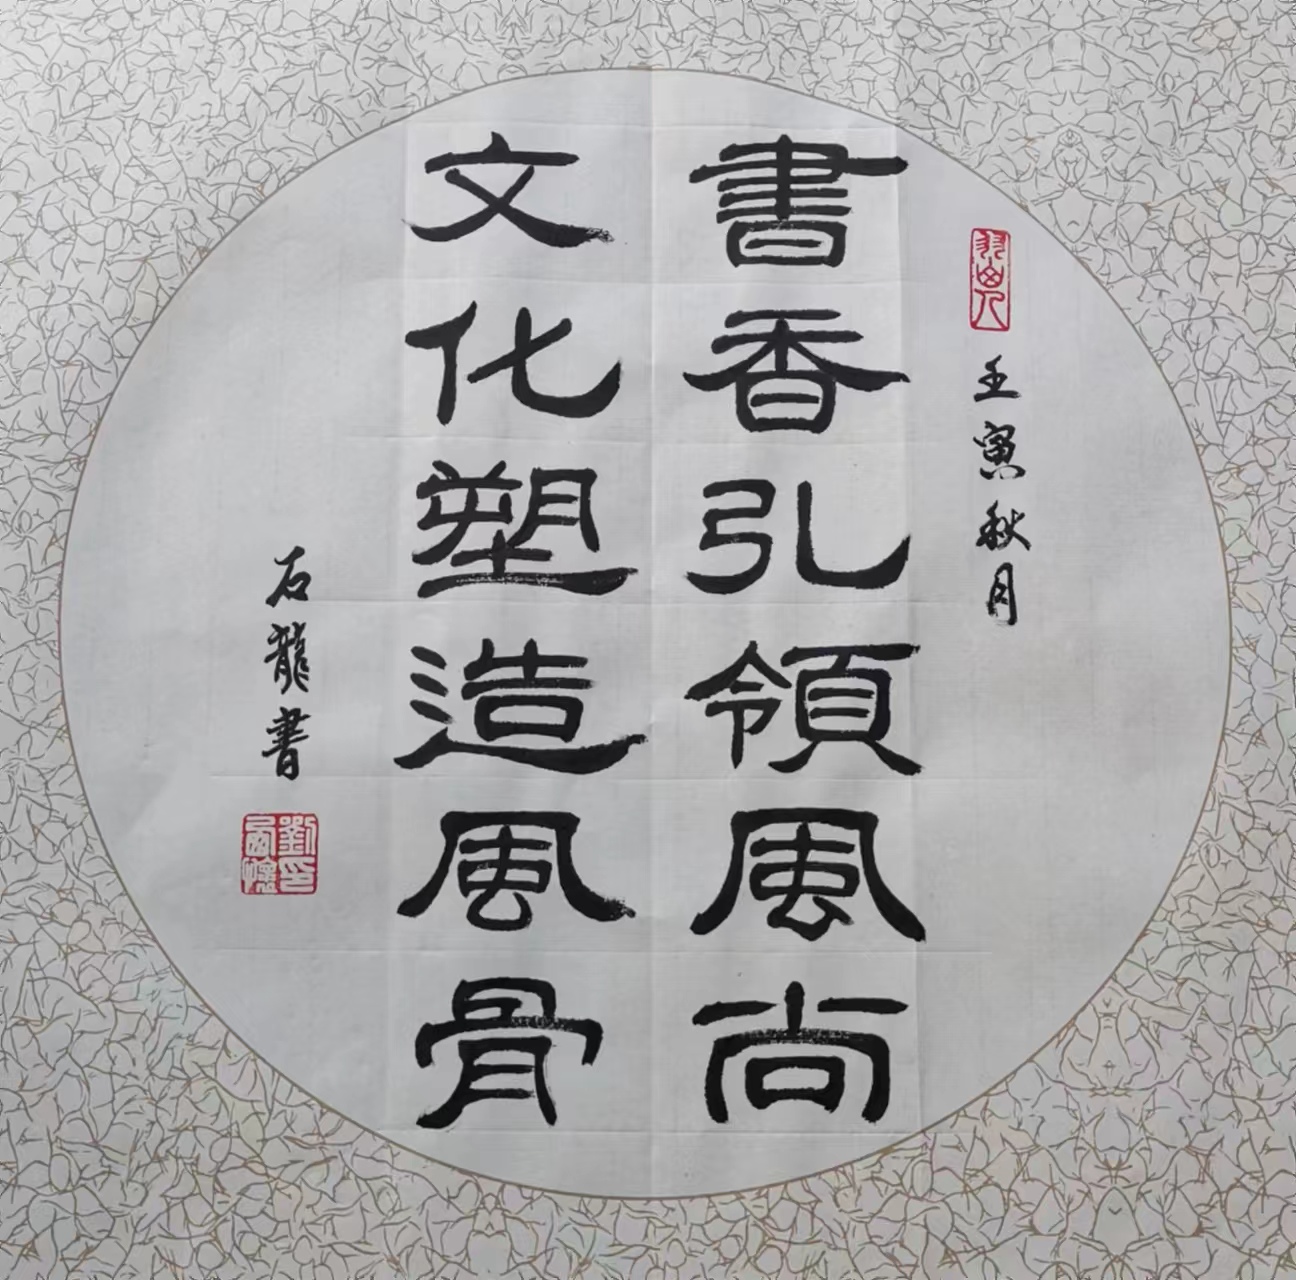 壬寅秋月
書香引領風尚
文化塑造風骨
石龍書